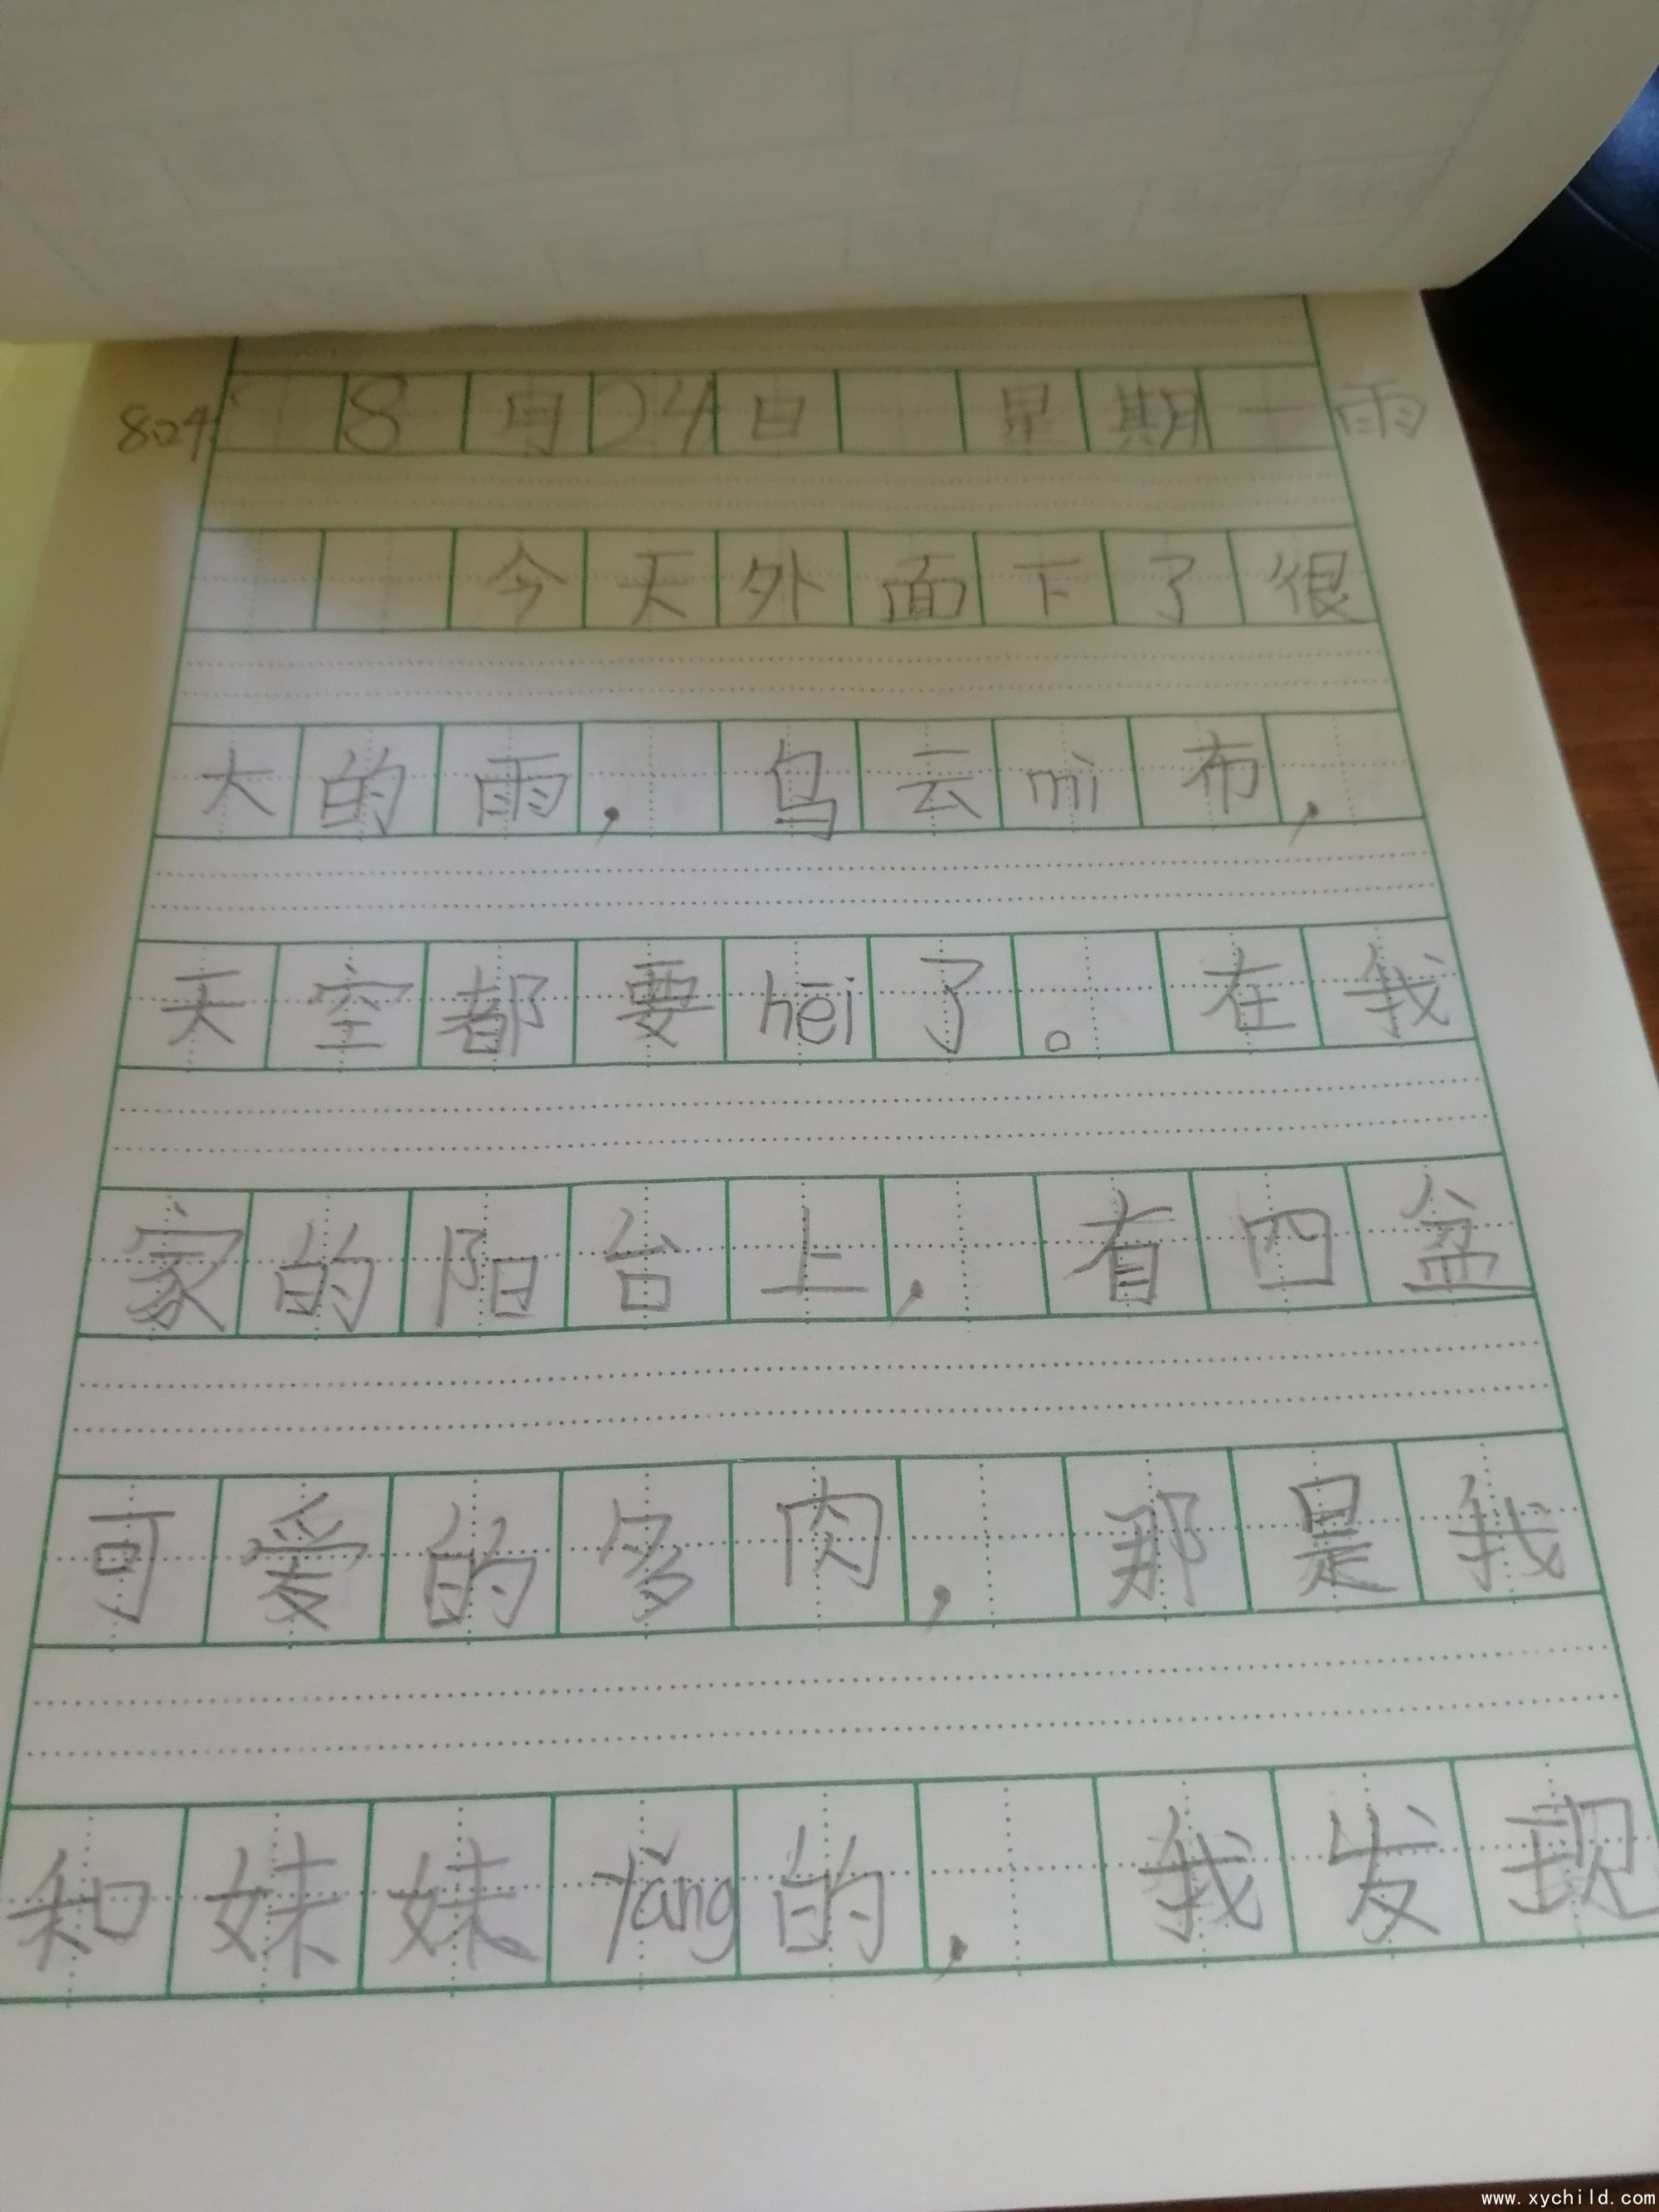 824 8月24日 星期一 雨
今天外面下了很
大的雨，乌云mi布，
天空都要hēi了。在我
家的阳台上，有四盆
可爱的多肉，那是我
和妹妹yǎng的，我发现
www.xychild.com